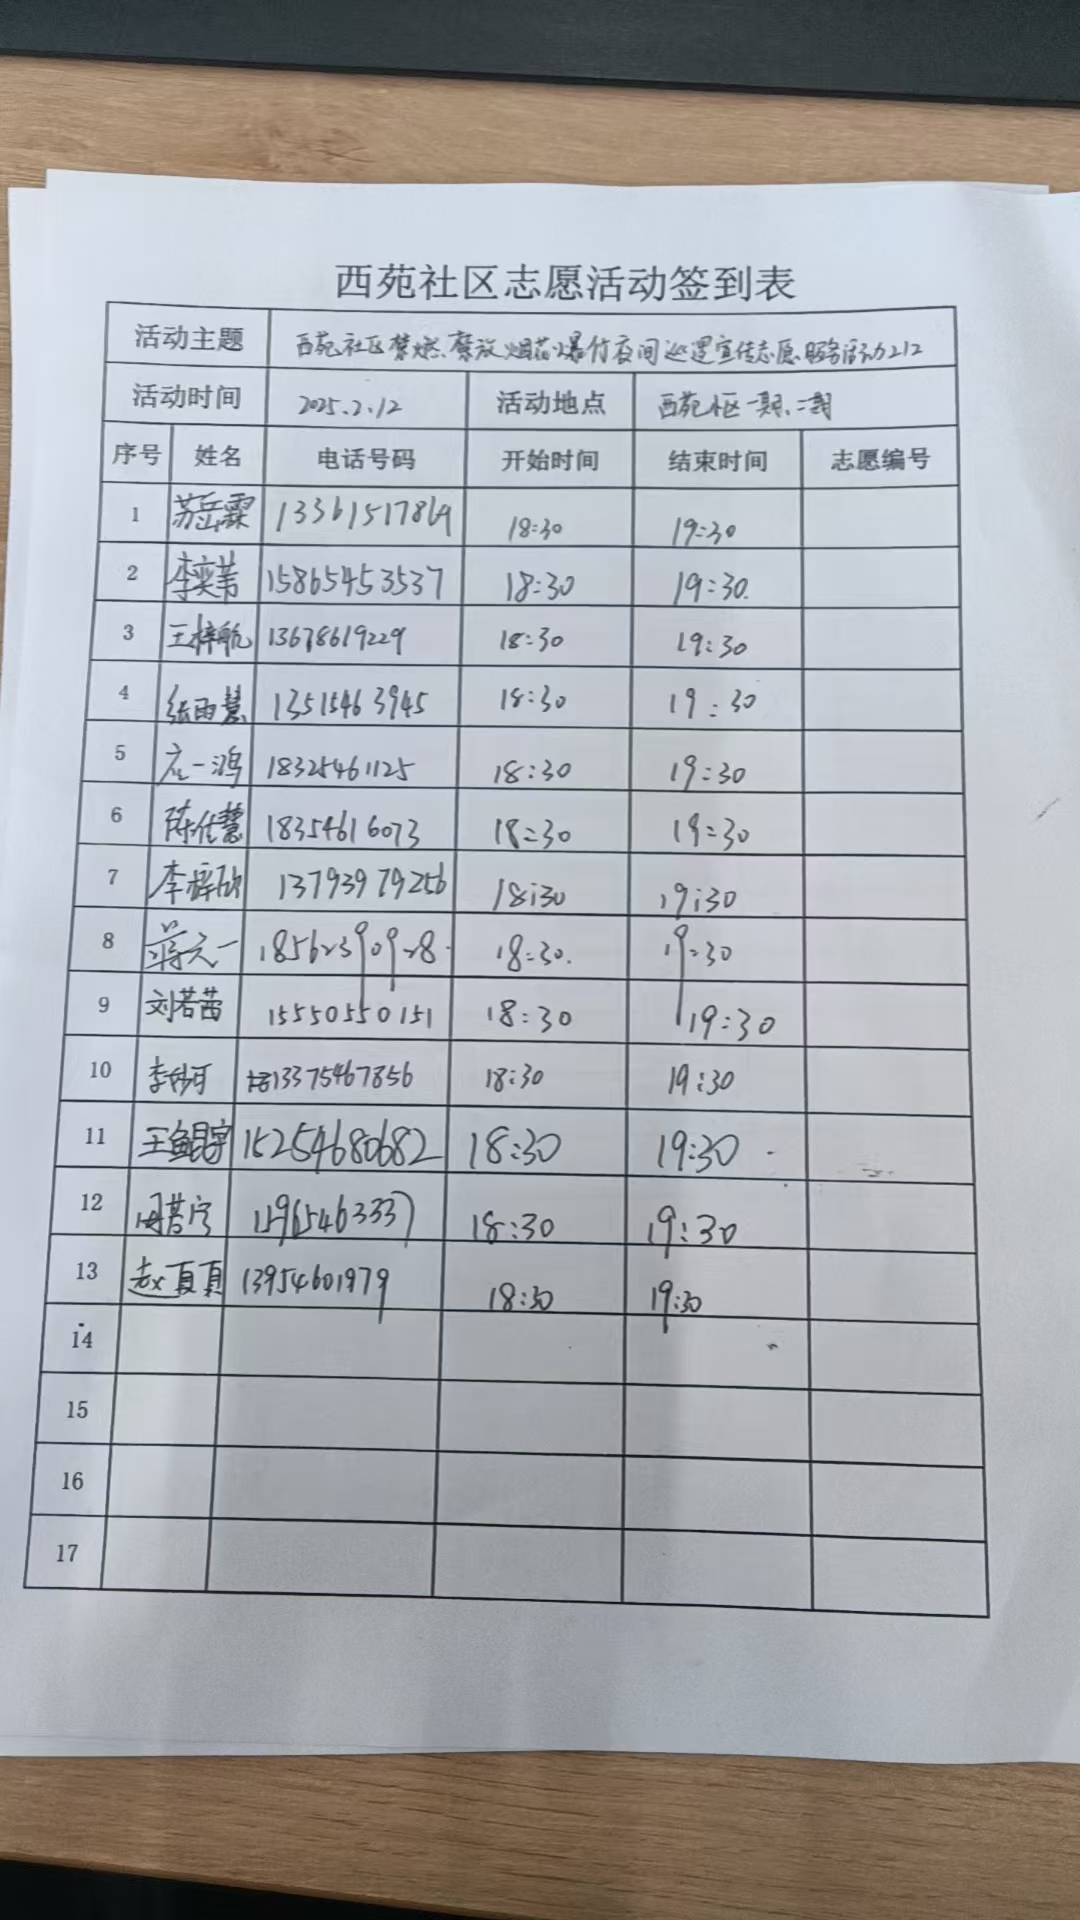 西苑社区志愿活动签到表
活动主题 西苑社区禁燃、禁放烟花爆竹夜间巡逻宣传志愿服务活动212
活动时间 2025.2.12 活动地点 西苑小区一期、二期
序号 姓名 电话号码 开始时间 结束时间 志愿编号
1 苏岳霖 13361517869 18:30 19:30
2 李奕苇 15865453537 18:30 19:30.
3 王梓航 13678619229 18:30 19:30
4 张雨慧 13515463945 18:30 19:30
5 一鸿 18325461125 18:30 19:30
6 陈佳慧 18354616073 18:30 19:30
7 李梓欣 13793979256 18:30 19:30
8 蒋元一 18562390928. 18:30. 19:30
9 刘若茜 15550550151 18:30 19:30
10 李妙可 13375467856 18:30 19:30
11 王鲲宇 15254680682 18:30 19:30
12 周若宁 18:30 19:30
13 赵夏頁 13954601979 18:30 19:30
14
15
16
17